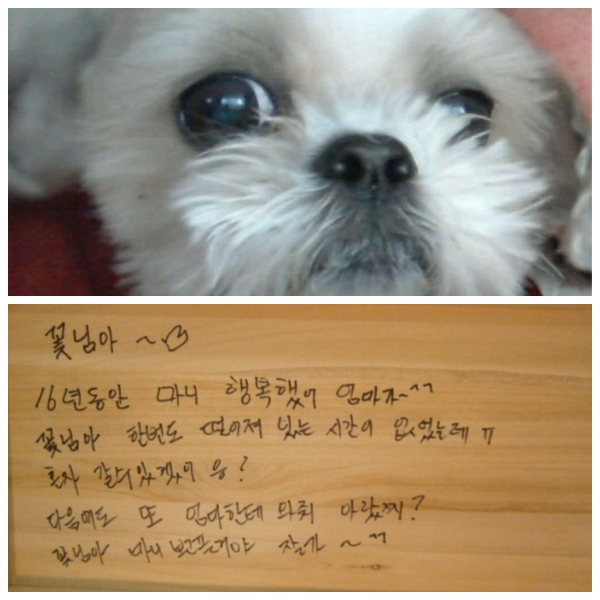 꽃님아 ~♡
16년동안 마니 행복했어 엄마가~^^
꽃님아 한번도 떨어져 있는 시간이 없었는데 ㅠ
혼자 갈수있겠어 응?
다음에도 또 엄마한테 와줘 아랐찌?
꽃님아 마니 보고플거야 잘가 ~ ^^